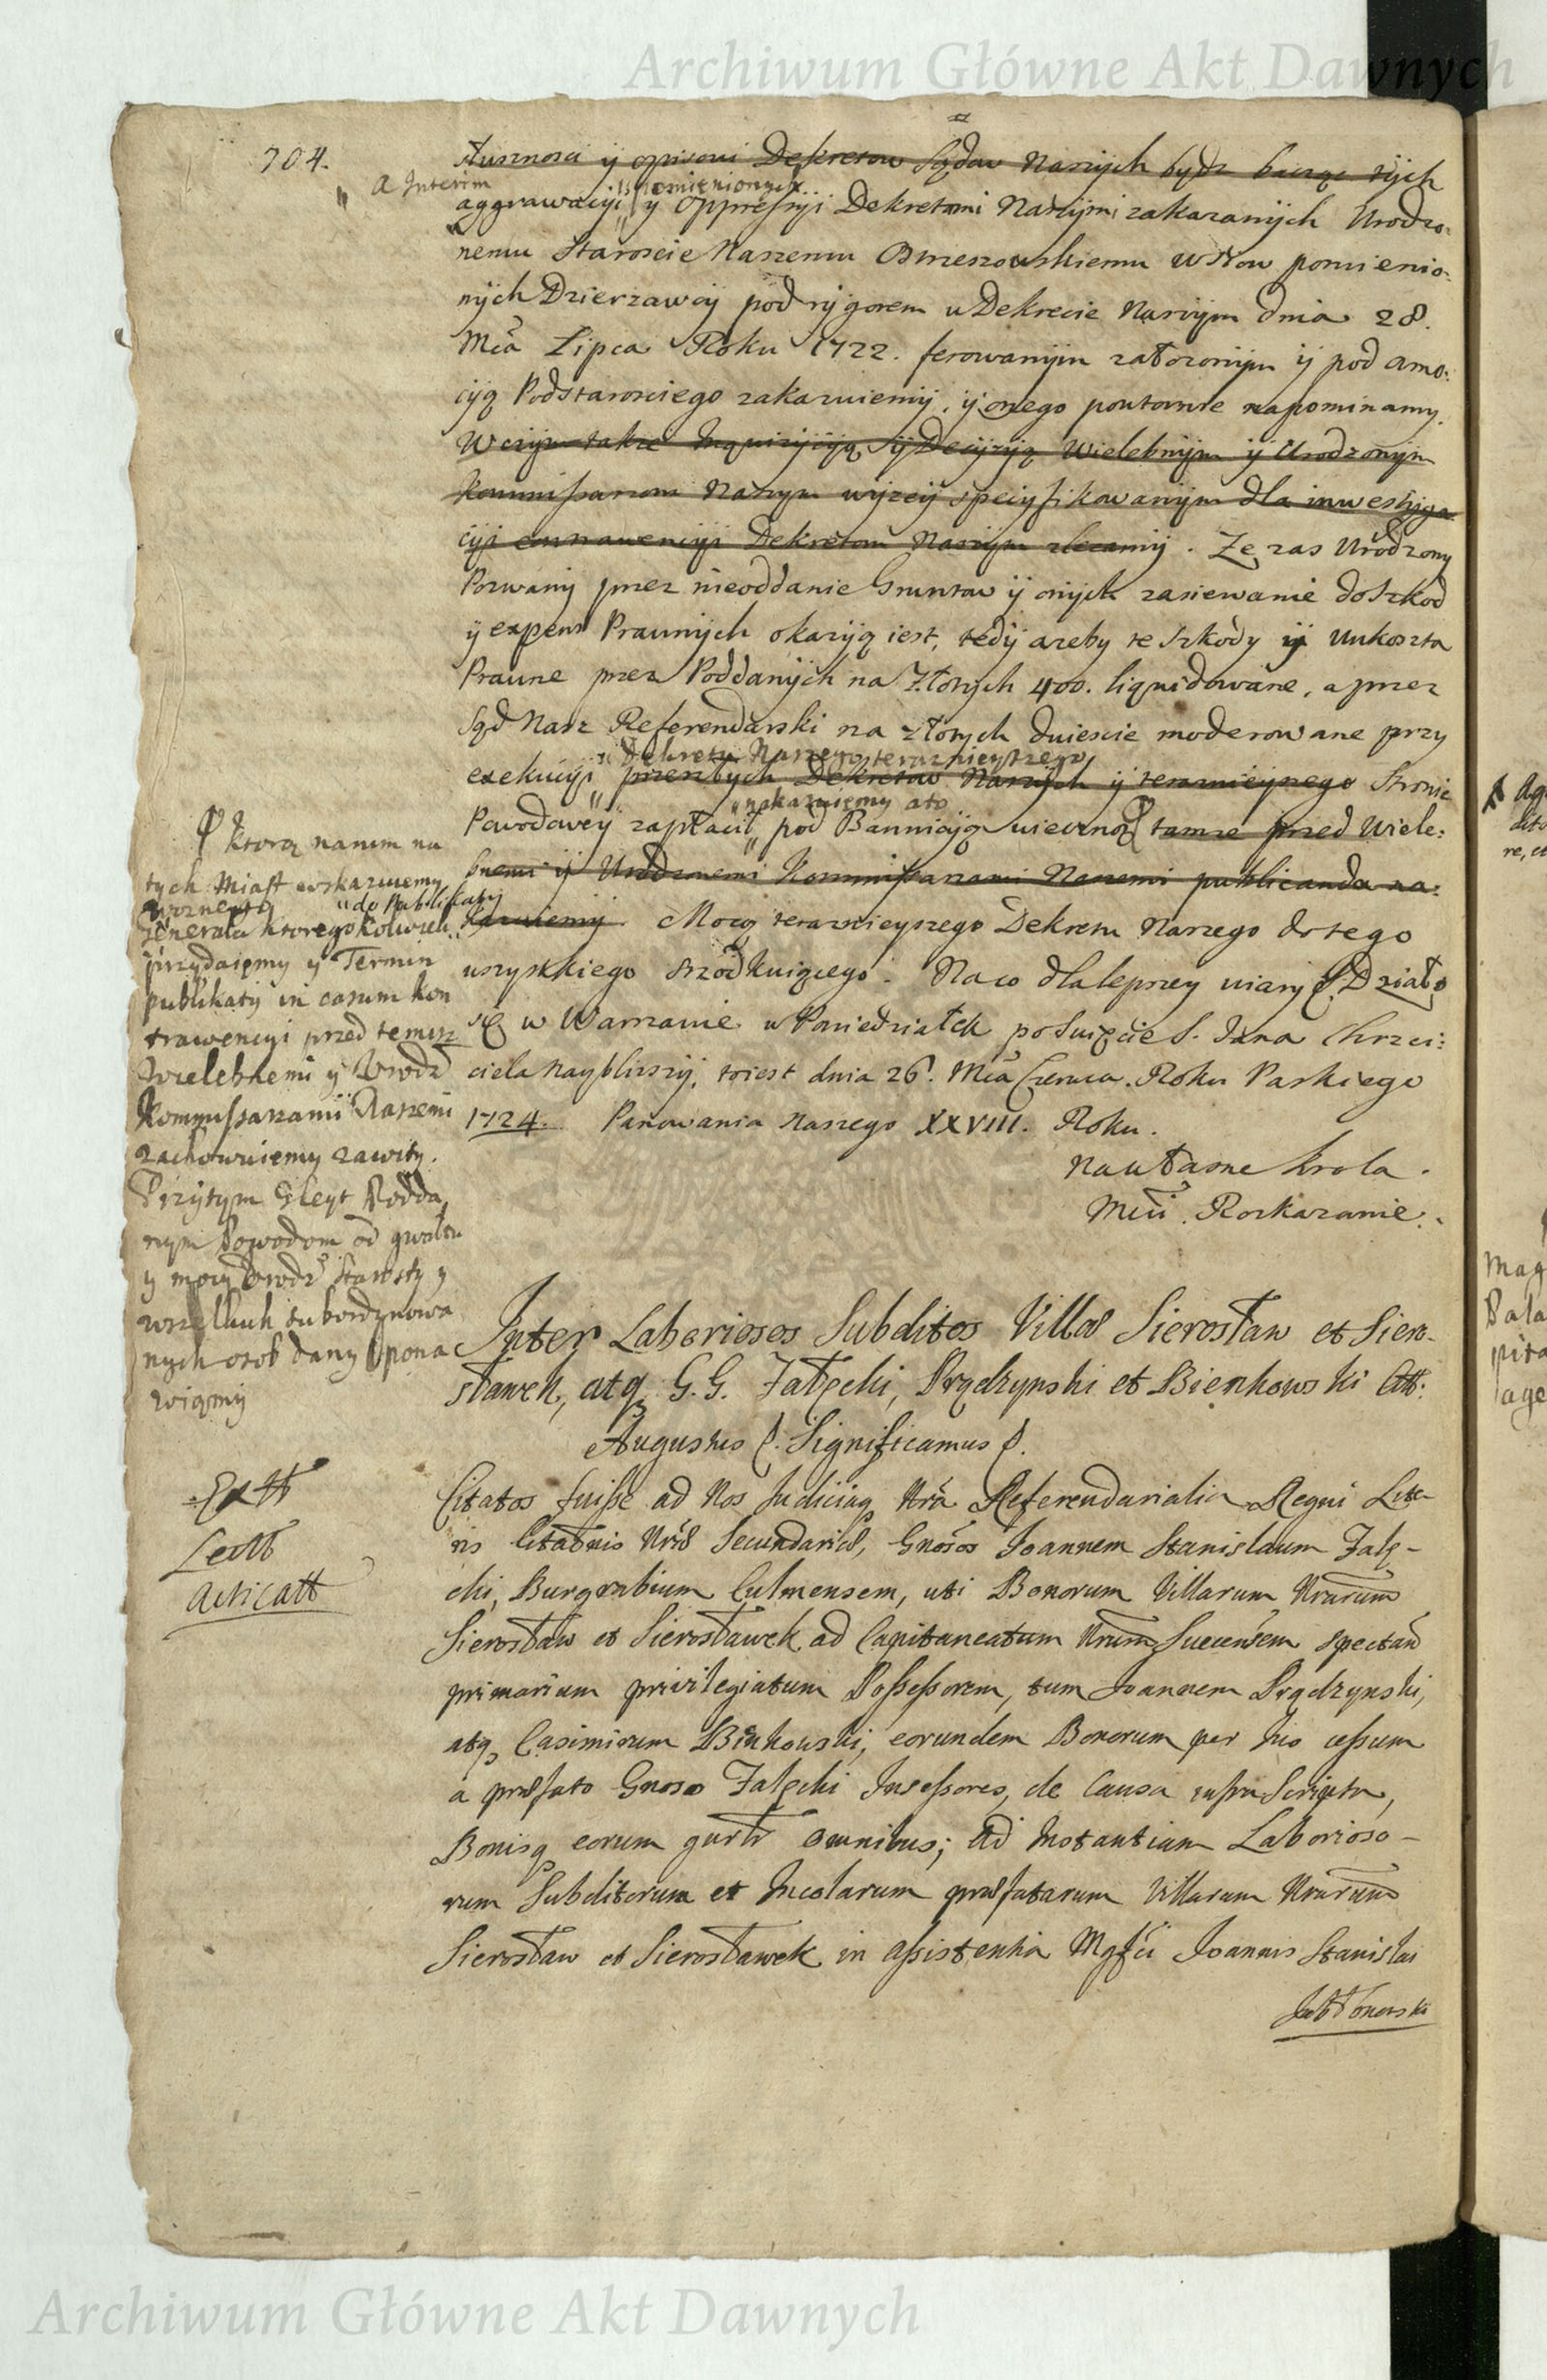 Archiwum Główne Akt Dawnych
704.
słusznosci ÿ opisowi Dekretow Sądow Naszÿch bydz tÿch
" A Interim
" pomienionych
aggrawacÿi " ÿ oppressÿi Dekretami Naszÿmi zakazanÿch Urodzo:
nemu Staroscie Naszemu Brzeszowskiemu wsiow pomienio:
nÿch Dzierzawcÿ pod rÿgorem w Dekrecie Naszÿm dnia 28.
Mcā Lipca Roku 1722. ferowanÿm załozonÿm ÿ pod amo:
cÿą Podstarosciego zakazuiemÿ, ÿ onego powtornie napominamy.
W czÿm takze Inquizÿcÿą ÿ Decÿzÿą Wielebnÿm ÿ Urodzonÿm
Kommissarzom Naszym wÿzeÿ specÿfikowanÿm dla inwestyga
cÿi contrawencÿi Dekretom Naszÿm zlecamÿ. Ze zas Urodzony
Pozwanÿ przez nieoddanie Gruntow ÿ onÿch zasiewanie do Szkod
ÿ expens Prawnÿch okazÿą iest, tedÿ azeby te Szkody ÿ Unkoszta
Prawne przez Poddanÿch na Złotych 400. liquidowane, a przez
Sąd Nasz Referendarski na złotych dwiescie moderowane przy
" Dekretu Naszego terazniejszego
exekucÿi " przeszłych Dekretow Naszÿch ÿ teraznieyszego Stronie
" nakazuiemy ato
Powodoweÿ zapłacił " pod Bannicÿą wieczną tamze przed Wiele:
bnemi ÿ Urodzonemi Kommissarzami Naszemi publicanda na:
kazuiemÿ. Mocą teraznieyszego Dekretu Naszego do tego
wszystkiego srzodkuiącego. Na co dla lepszey wiary &. Działo
się w Warszawie w Poniedziałek po Swięcie S. Jana Chrzci:
ciela nayblizszÿ, toiest dnia 26. Mcā Czerwca. Roku Panskiego
1724. Panowania naszego XXVIII. Roku.
Na własne Krola.
Mci. Rozkazanie.
ktorą nanim na
tych Miast wskazuiemy
woznego "do Publikaty
Jenerała ktoregokolwiek "
przydaięmy y Termin
publikaty in casum kon
trawencyi przed temisz
Wielebnemi y Urodz
Kommissarzami Naszemi
zachowuiemy zawity.
Przytym Gleyt Podda,
nym Powodom od gwałtu
y mocy Urodz Starosty y
wszelkich subordynowa
nych osob dany ponа
wiąmy
Inter Laboriosos Subditos Villae Sierosław et Siero-
sławek, atq G. G. Załęcki, Prądzynski et Bienkowski Att:
Augustus &. Significamus &.
Extt
Lectt
acticatt
Citatos fuisse ad Nos Judiciaq Nrā Referendarialia Regni Lite-
ris Citatnis Nris Secundariis, Gnosos Joannem Stanislaum Załę-
cki, Burgrabium Culmensem, uti Bonorum Villarum Nrarum
Sierosław et Sierosławek ad Capitaneatum Nrum Suecensem spectan
primarium privilegiatum Possessorem, tum Joannem Prądzynski,
atq Casimirum Binkowski, eorundem Bonorum per Jus cessum
a praefato Gnoso Załęcki Insessores, de Causa infra Scripta,
Bonisq eorum gnrlr omnibus; Ad Instantiam Laborioso-
rum Subditorum et Incolarum praefatarum Villarum Nrarum
Sierosław et Sierosławek in assistentia Mgfci Joannis Stanislai
Jabłonowski
Archiwum Główne Akt Dawnych